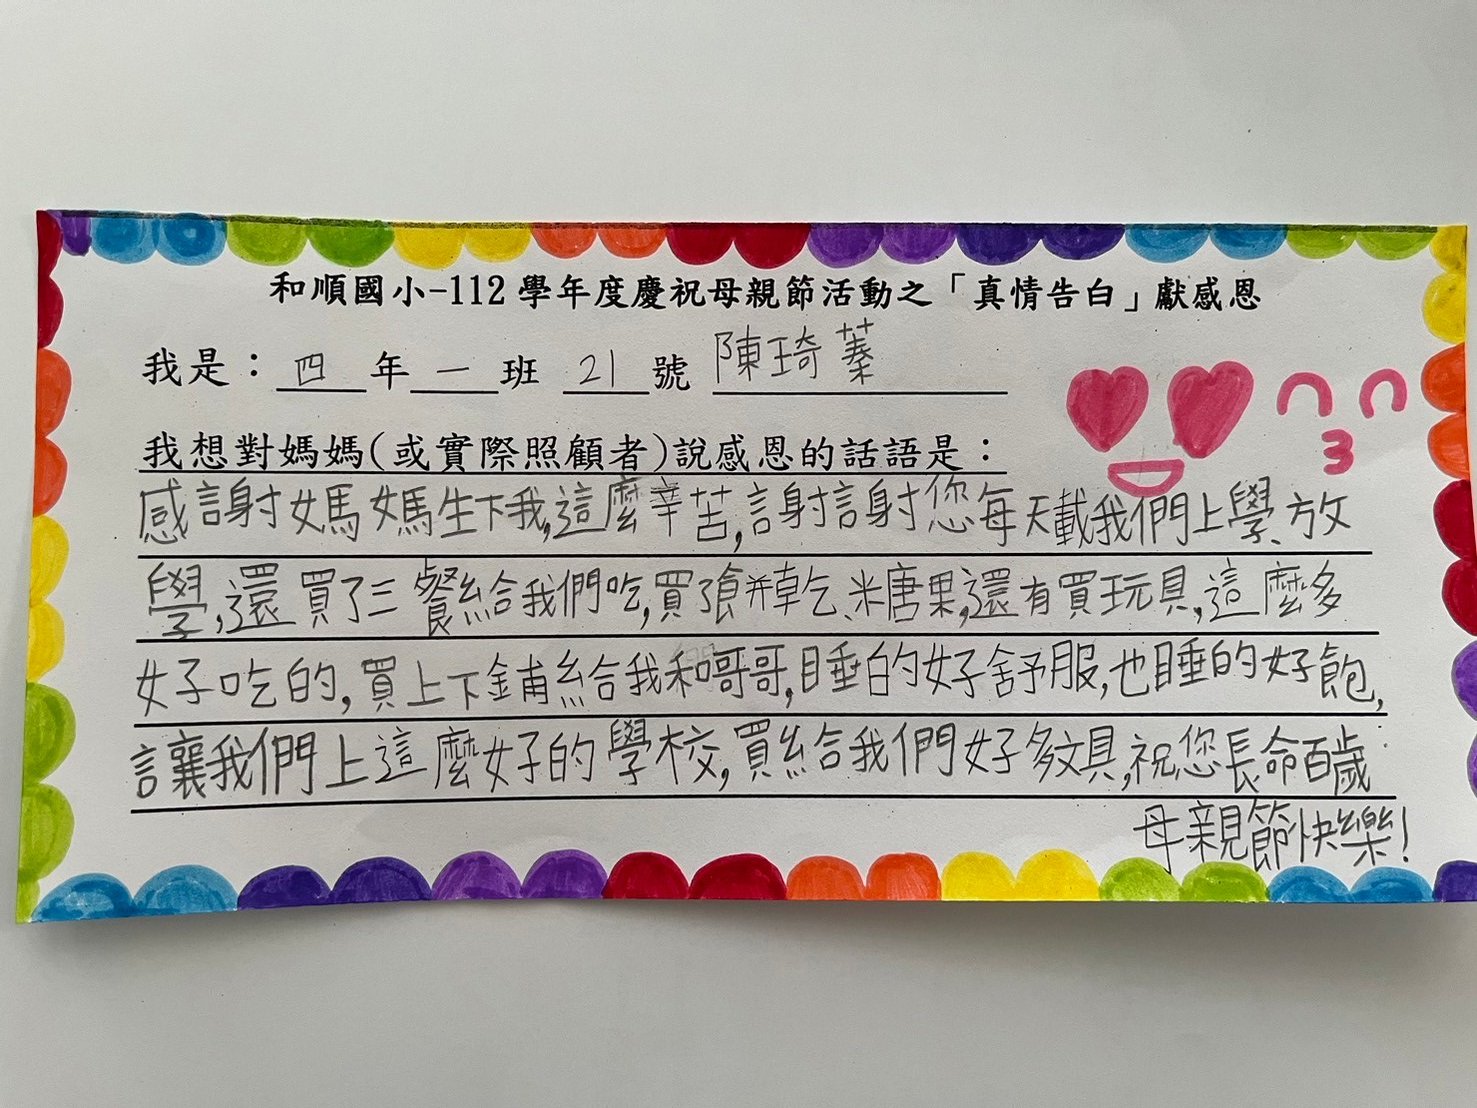 和順國小-112學年度慶祝母親節活動之「真情告白」獻感恩
我是：四年一班 21號 陳琦蓁
我想對媽媽(或實際照顧者)說感恩的話語是：
感謝媽媽生下我,這麼辛苦,謝謝您每天載我們上學、放
學,還買了三餐給我們吃,買了餅乾、糖果,還有買玩具,這麼多
好吃的,買上下鋪給我和哥哥,睡的好舒服,也睡的好飽,
讓我們上這麼好的學校,買給我們好多文具,祝您長命百歲
母親節快樂!